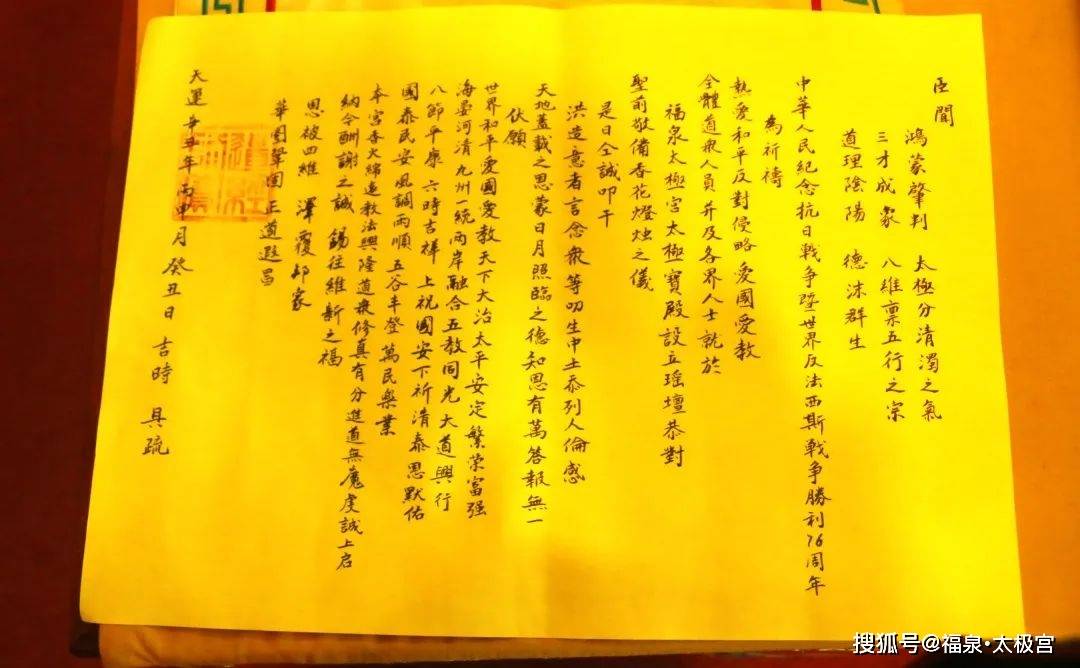 臣聞
鴻蒙肇判　太極分清濁之氣
三才成象　八維禀五行之宗
道理陰陽　德沐群生
中華人民紀念抗日戰争暨世界反法西斯戰争勝利76周年
為祈禱
熱愛和平反對侵略愛國愛教
全體道衆人員并及各界人士就於
福泉太極宮太極寶殿設立瑶壇恭對
聖前敬備香花燈烛之儀
是日仝誠叩干
洪造意者言念衆等叨生中土忝列人倫感
天地蓋載之恩蒙日月照臨之德知恩有萬答報無一
伏願
世界和平愛國愛教天下大治太平安定繁荣富强
海晏河清九州一統兩岸融合五教同光大道興行
八節平康　六時吉祥　上祝國安下祈清泰恩默佑
國泰民安　風調雨順　五谷丰登　萬民樂業
本宫香火綿遠教法興隆道衆修真有分進道無魔虔誠上启
納今酬謝之誠　錫往維新之福
恩被四維　澤覆邦家
華國鞏固　正道遐昌
天運辛丑年丙申月癸丑日吉時　具疏
搜狐号@福泉•太极宫